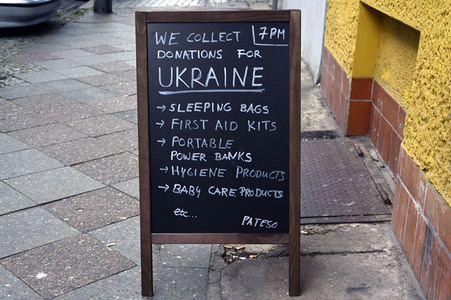 WE COLLECT 7PM
DONATIONS FOR
UKRAINE
→ SLEEPING BAGS
→ FIRST AID KITS
→ PORTABLE
POWER BANKS
→ HYGIENE PRODUCTS
→ BABY CARE PRODUCTS
etc... PATESO